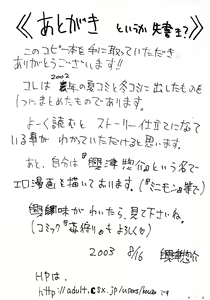 《あとがき というか 失書き?》
このコピー本を手に取っていただき
ありがとうございます!!
コレは2002年の夏コミと冬コミに出したものを
1つにまとめたものであります。
よーく読むと ストーリー仕立てになて
いる事が わかっていただけると思います。
あと、自分は『興津惣介』という名で
エロ漫画を描いております。(『ミニモン』等で)
興味がわいたら、見て下さいね。
(コミック『 狩り』も よろしくな)
2003 8/6 興津惣介
HPは、
http://adult.csx.jp/users/ です